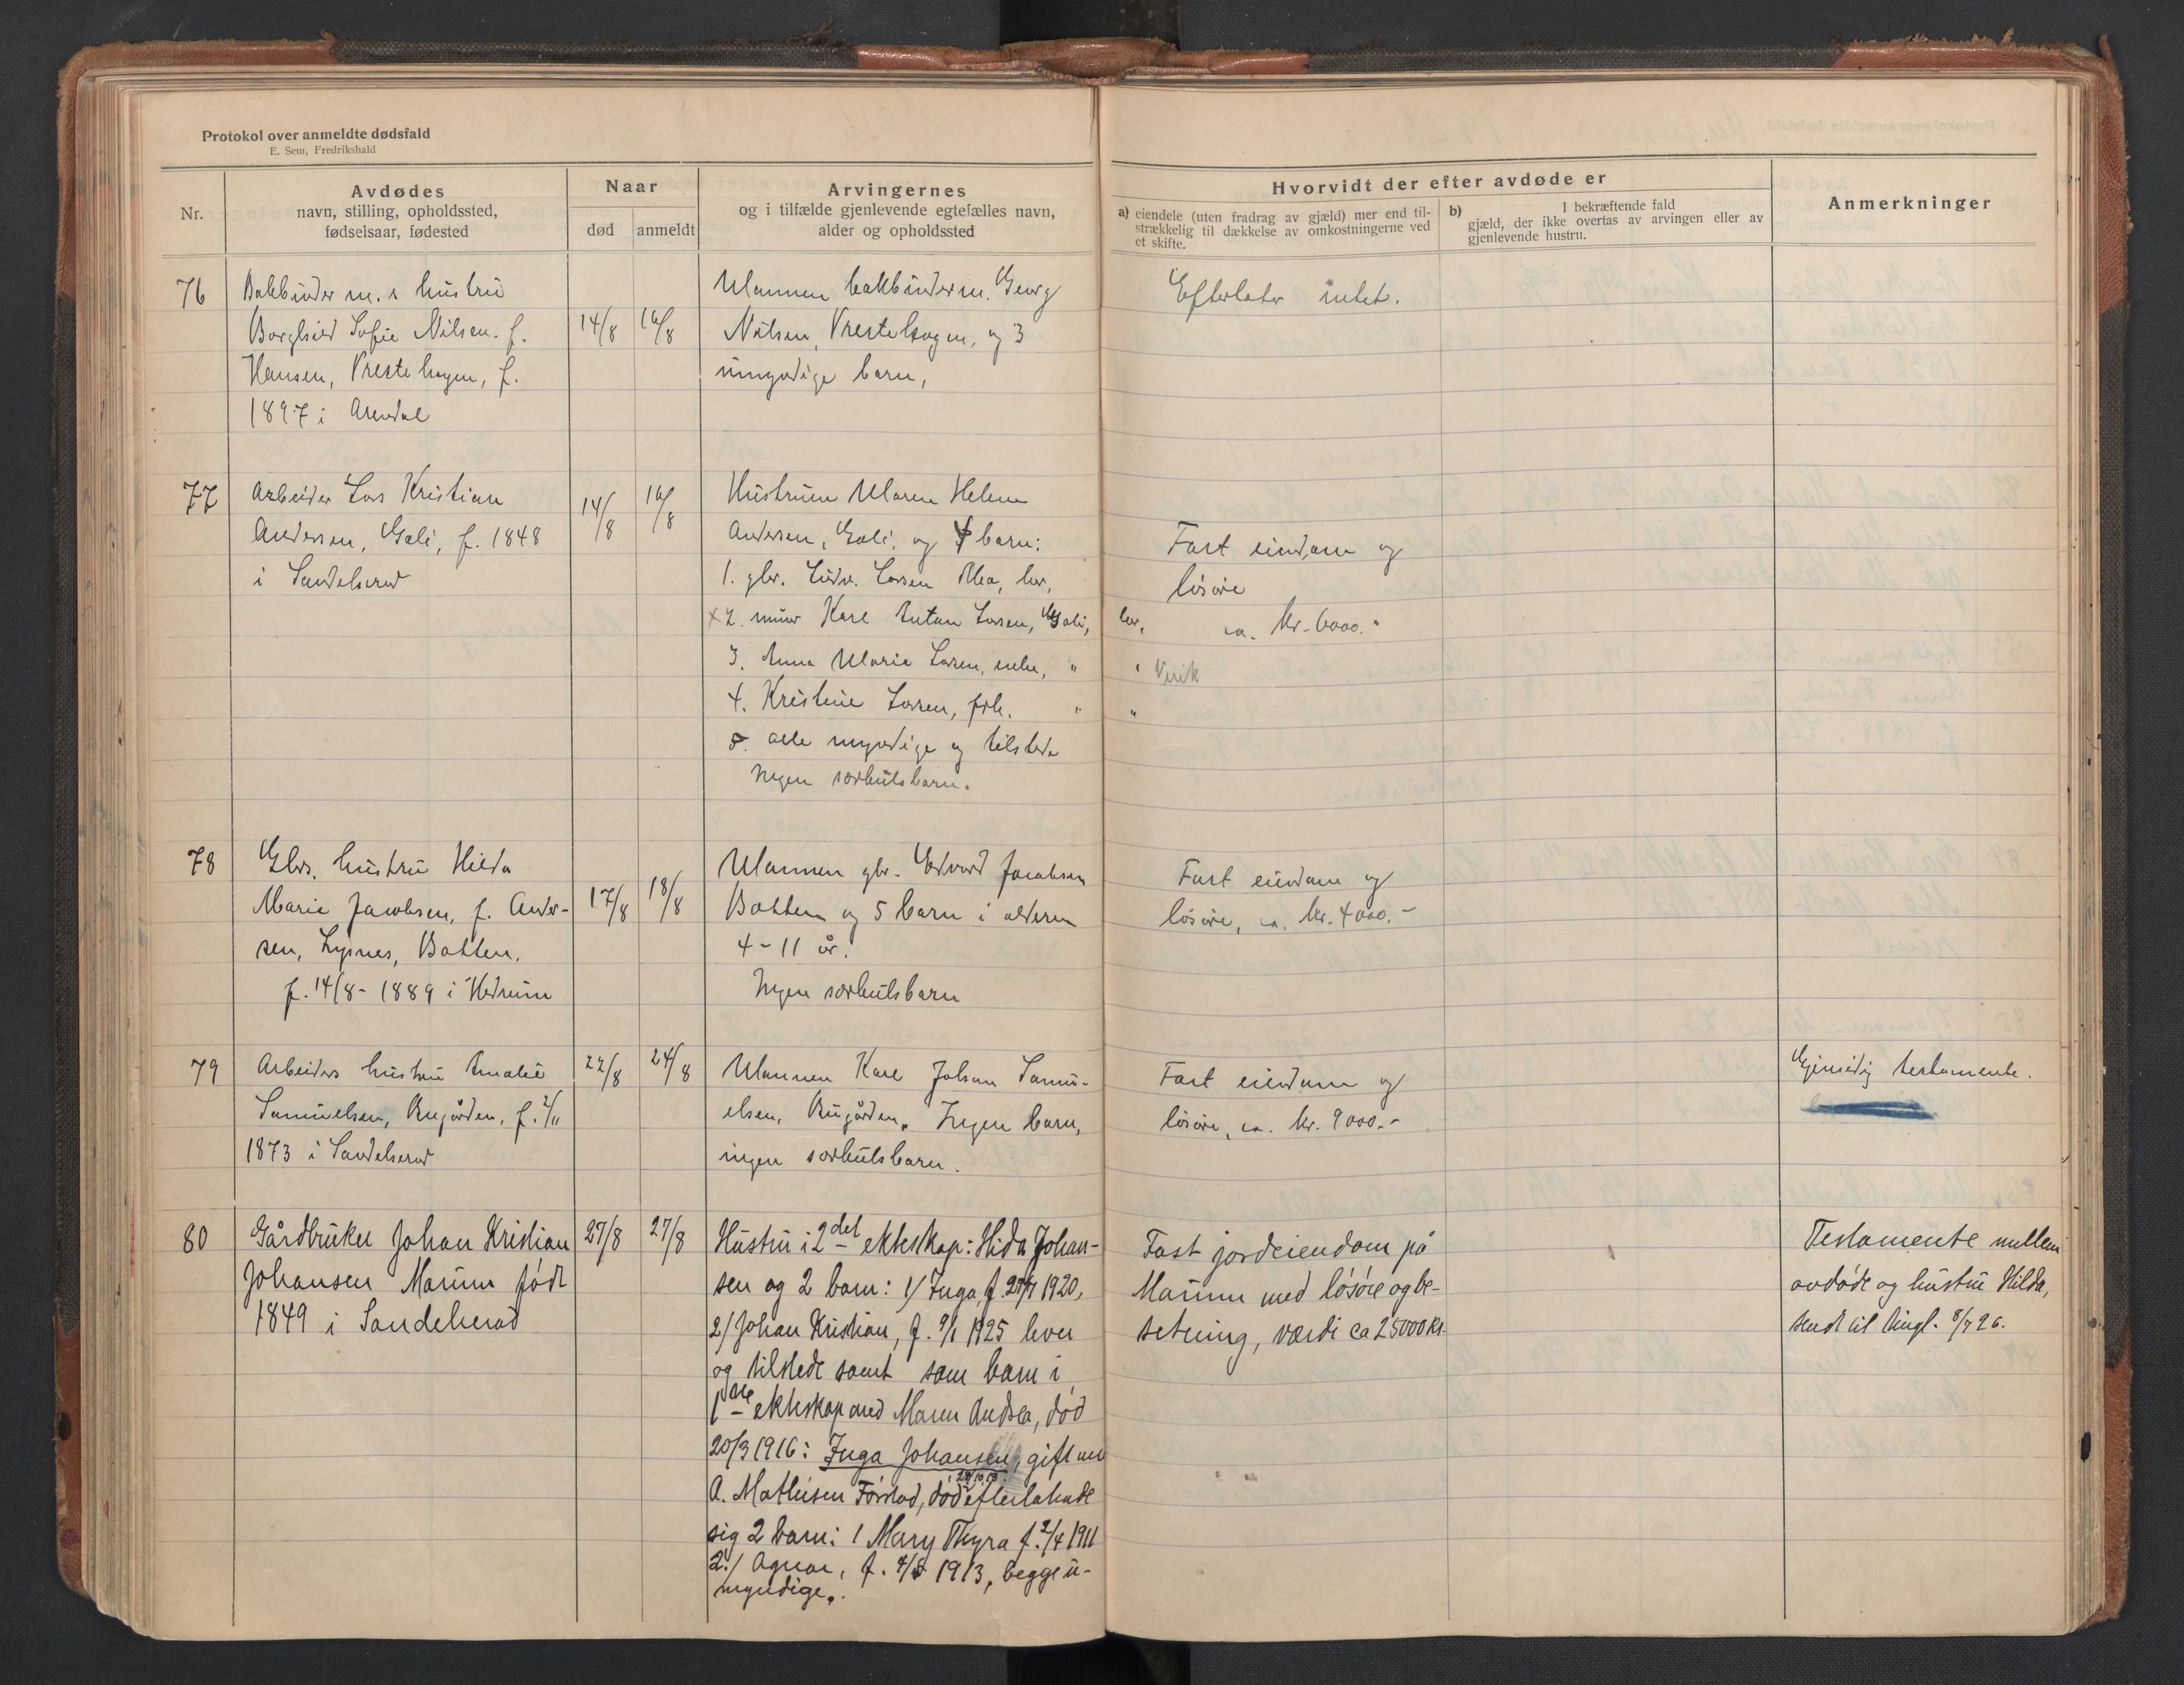 Protokol over anmeldte dødsfald
E. Sem, Fredrikshald
Nr.
Avdødes
navn, stilling, opholdssted,
fødselsaar, fødested
Naar
død
anmeldt
Arvingernes
og i tilfælde gjenlevende egtefælles navn,
alder og opholdssted
Hvorvidt der efter avdøde er
a) eiendele (uten fradrag av gjæld) mer end til-
strækkelig til dækkelse av omkostningerne ved
et skifte.
b) I bekræftende fald
gjæld, der ikke overtas av arvingen eller av
gjenlevende hustru.
Anmerkninger
76
Bokbinder m.s hustru
Borghild Sofie Nilsen. f.
Hansen, Prestehagen, f.
1897 i Arendal
14/8
16/8
Mannen bokbinderm. Georg
Nilsen, Prestehagen, og 3
umyndige barn,
Efterlater intet.
77
Arbeider Lars Kristian
Andersen, Gali, f. 1848
i Sandeherad
14/8
16/8
Hustruen Maren Helene
Andersen, Gali, og 4 barn:
1. gbr. Ludv. Larsen Moa, her,
x2. murer Karl Anton Larsen, Gali, her,
3. Anna Marie Larsen, enke, " "
4. Kristine Larsen, frk. " "
alle myndige og tilstede
Ingen særkulsbarn.
Fast eiendom og
løsøre
ca. kr. 6000.-
78
Gbrs. hustru Hilda
Marie Jacobsen, f. Ander-
sen, Lysnes, Botten.
f. 14/8 - 1889 i Hedrum
17/8
18/8
Mannen gbr. Edvard Jacobsen
Botten og 5 barn i alderen
4 - 11 år.
Ingen særkulsbarn
Fast eiendom og
løsøre, ca. kr. 4000.-
79
Arbeiders hustru Amalie
Samuelsen, Rugården, f. 2/11
1873 i Sandeherad
22/8
24/8
Mannen Karl Johan Samu-
elsen, Rugården. Ingen barn,
ingen særkulsbarn.
Fast eiendom og
løsøre, ca. kr. 9000.-
Gjensidig testamente.
80
Gårdbruker Johan Kristian
Johansen Marum født
1849 i Sandeherad
27/8
27/8
Hustru i 2det ekteskap: Hilda Johan-
sen og 2 barn: 1/ Inga, f. 1920,
2/ Johan Kristian, f. 9/1 1925 hver
og tilstede samt som barn i
1ste ekteskap med Maren Andrea, død
20/3 1916: Inga Johansen, gift med
A. Mathisen Førstad, død 28/10 18. efterlatende
sig 2 barn: 1 Mary Thyra f. 2/4 1911
2/ Agnar, f. 1913, begge u-
myndige.
Fast jordeiendom på
Marum med løsøre og be-
setning, værdi ca 25000 kr.
Testamente mellem
avdøde og hustru Hilda,
sendt til tingl. 8/9 26.